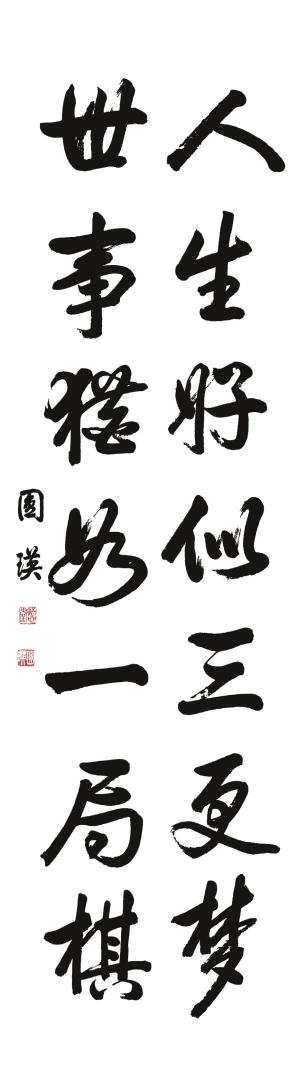 人生好似三更梦
世事犹如一局棋
圆瑛